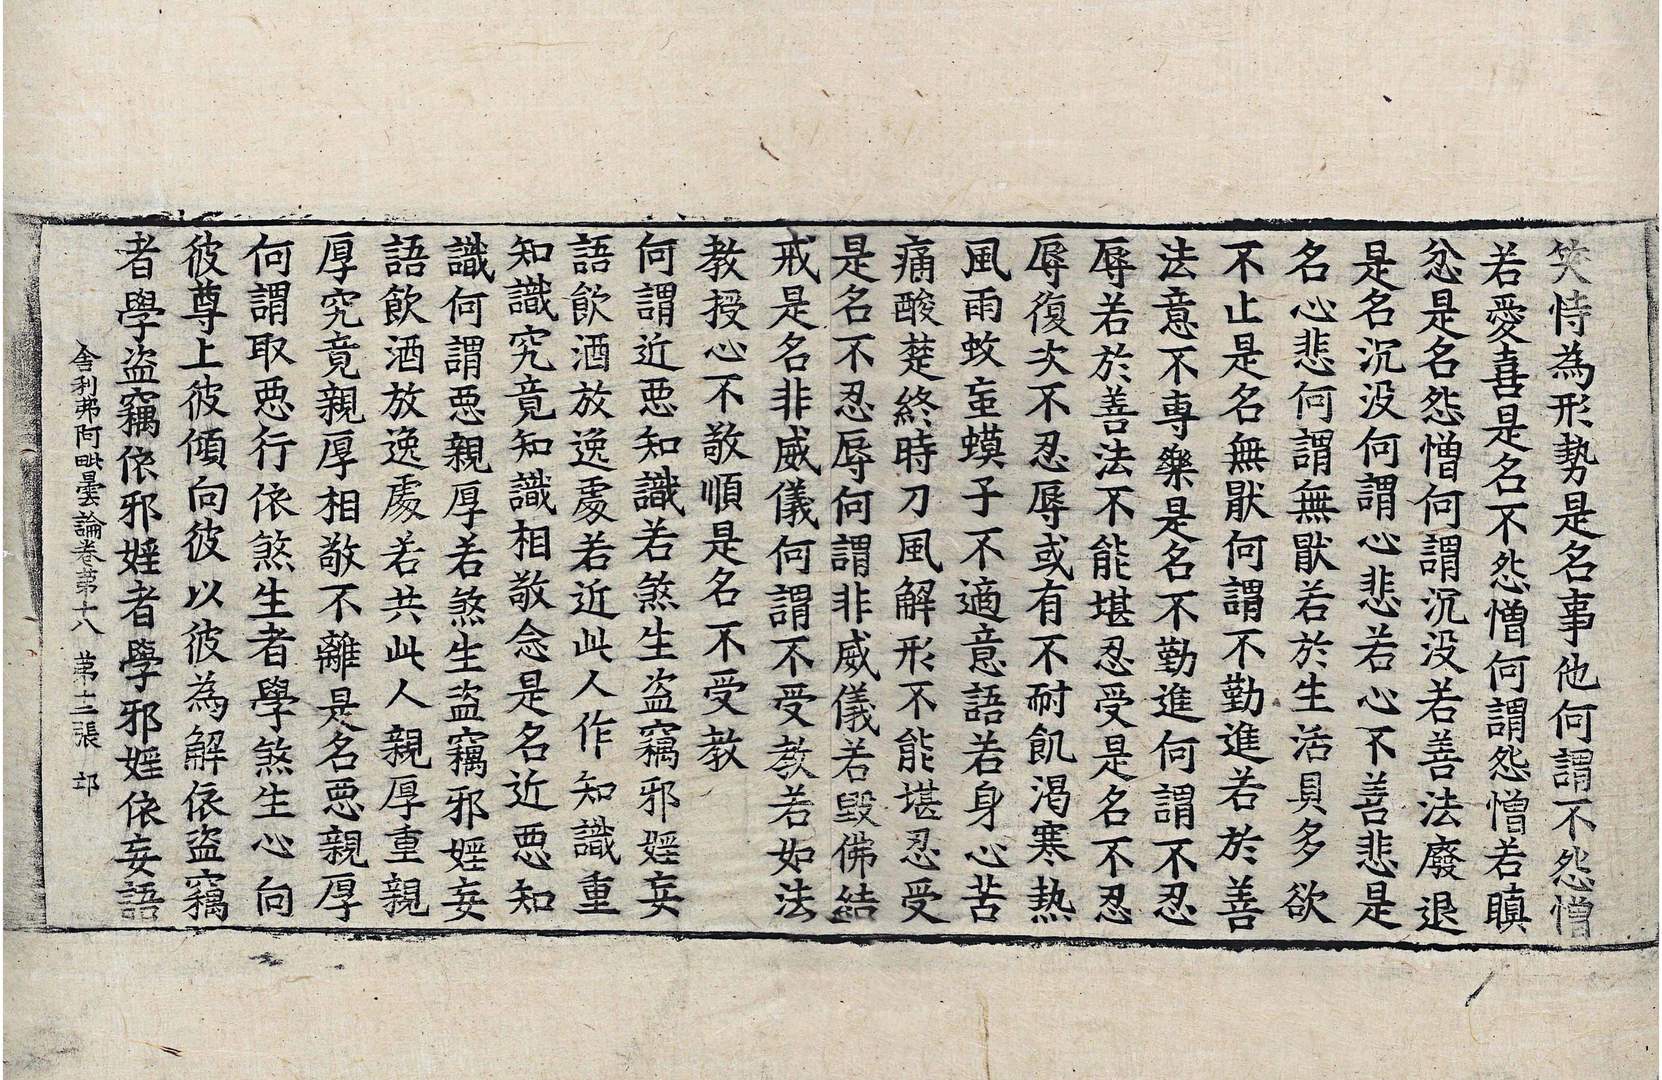 笑恃為形勢是名事他何謂不怨憎
若愛喜是名不怨憎何謂怨憎若瞋
忿是名怨憎何謂沉没若善法廢退
是名沉没何謂心悲若心不善悲是
名心悲何謂無猒若於生活具多欲
不止是名無猒何謂不勤進若於善
法意不専樂是名不勤進何謂不忍
辱若於善法不能堪忍受是名不忍
辱復次不忍辱或有不耐飢渴寒熱
風雨蚊䖟蟆子不適意語若身心苦
痛酸楚終時刀風解形不能堪忍受
是名不忍辱何謂非威儀若毀佛結
戒是名非威儀何謂不受教若如法
教授心不敬順是名不受教
何謂近惡知識若煞生盜竊邪婬妄
語飲酒放逸處若近此人作知識重
知識究竟知識相敬念是名近惡知
識何謂惡親厚若煞生盜竊邪婬妄
語飲酒放逸處若共此人親厚重親
厚究竟親厚相敬不離是名惡親厚
何謂取惡行依煞生者學煞生心向
彼尊上彼傾向彼以彼為解依盜竊
者學盜竊依邪婬者學邪婬依妄語
舍利弗阿毗曇論卷第十八 第十三張 邙